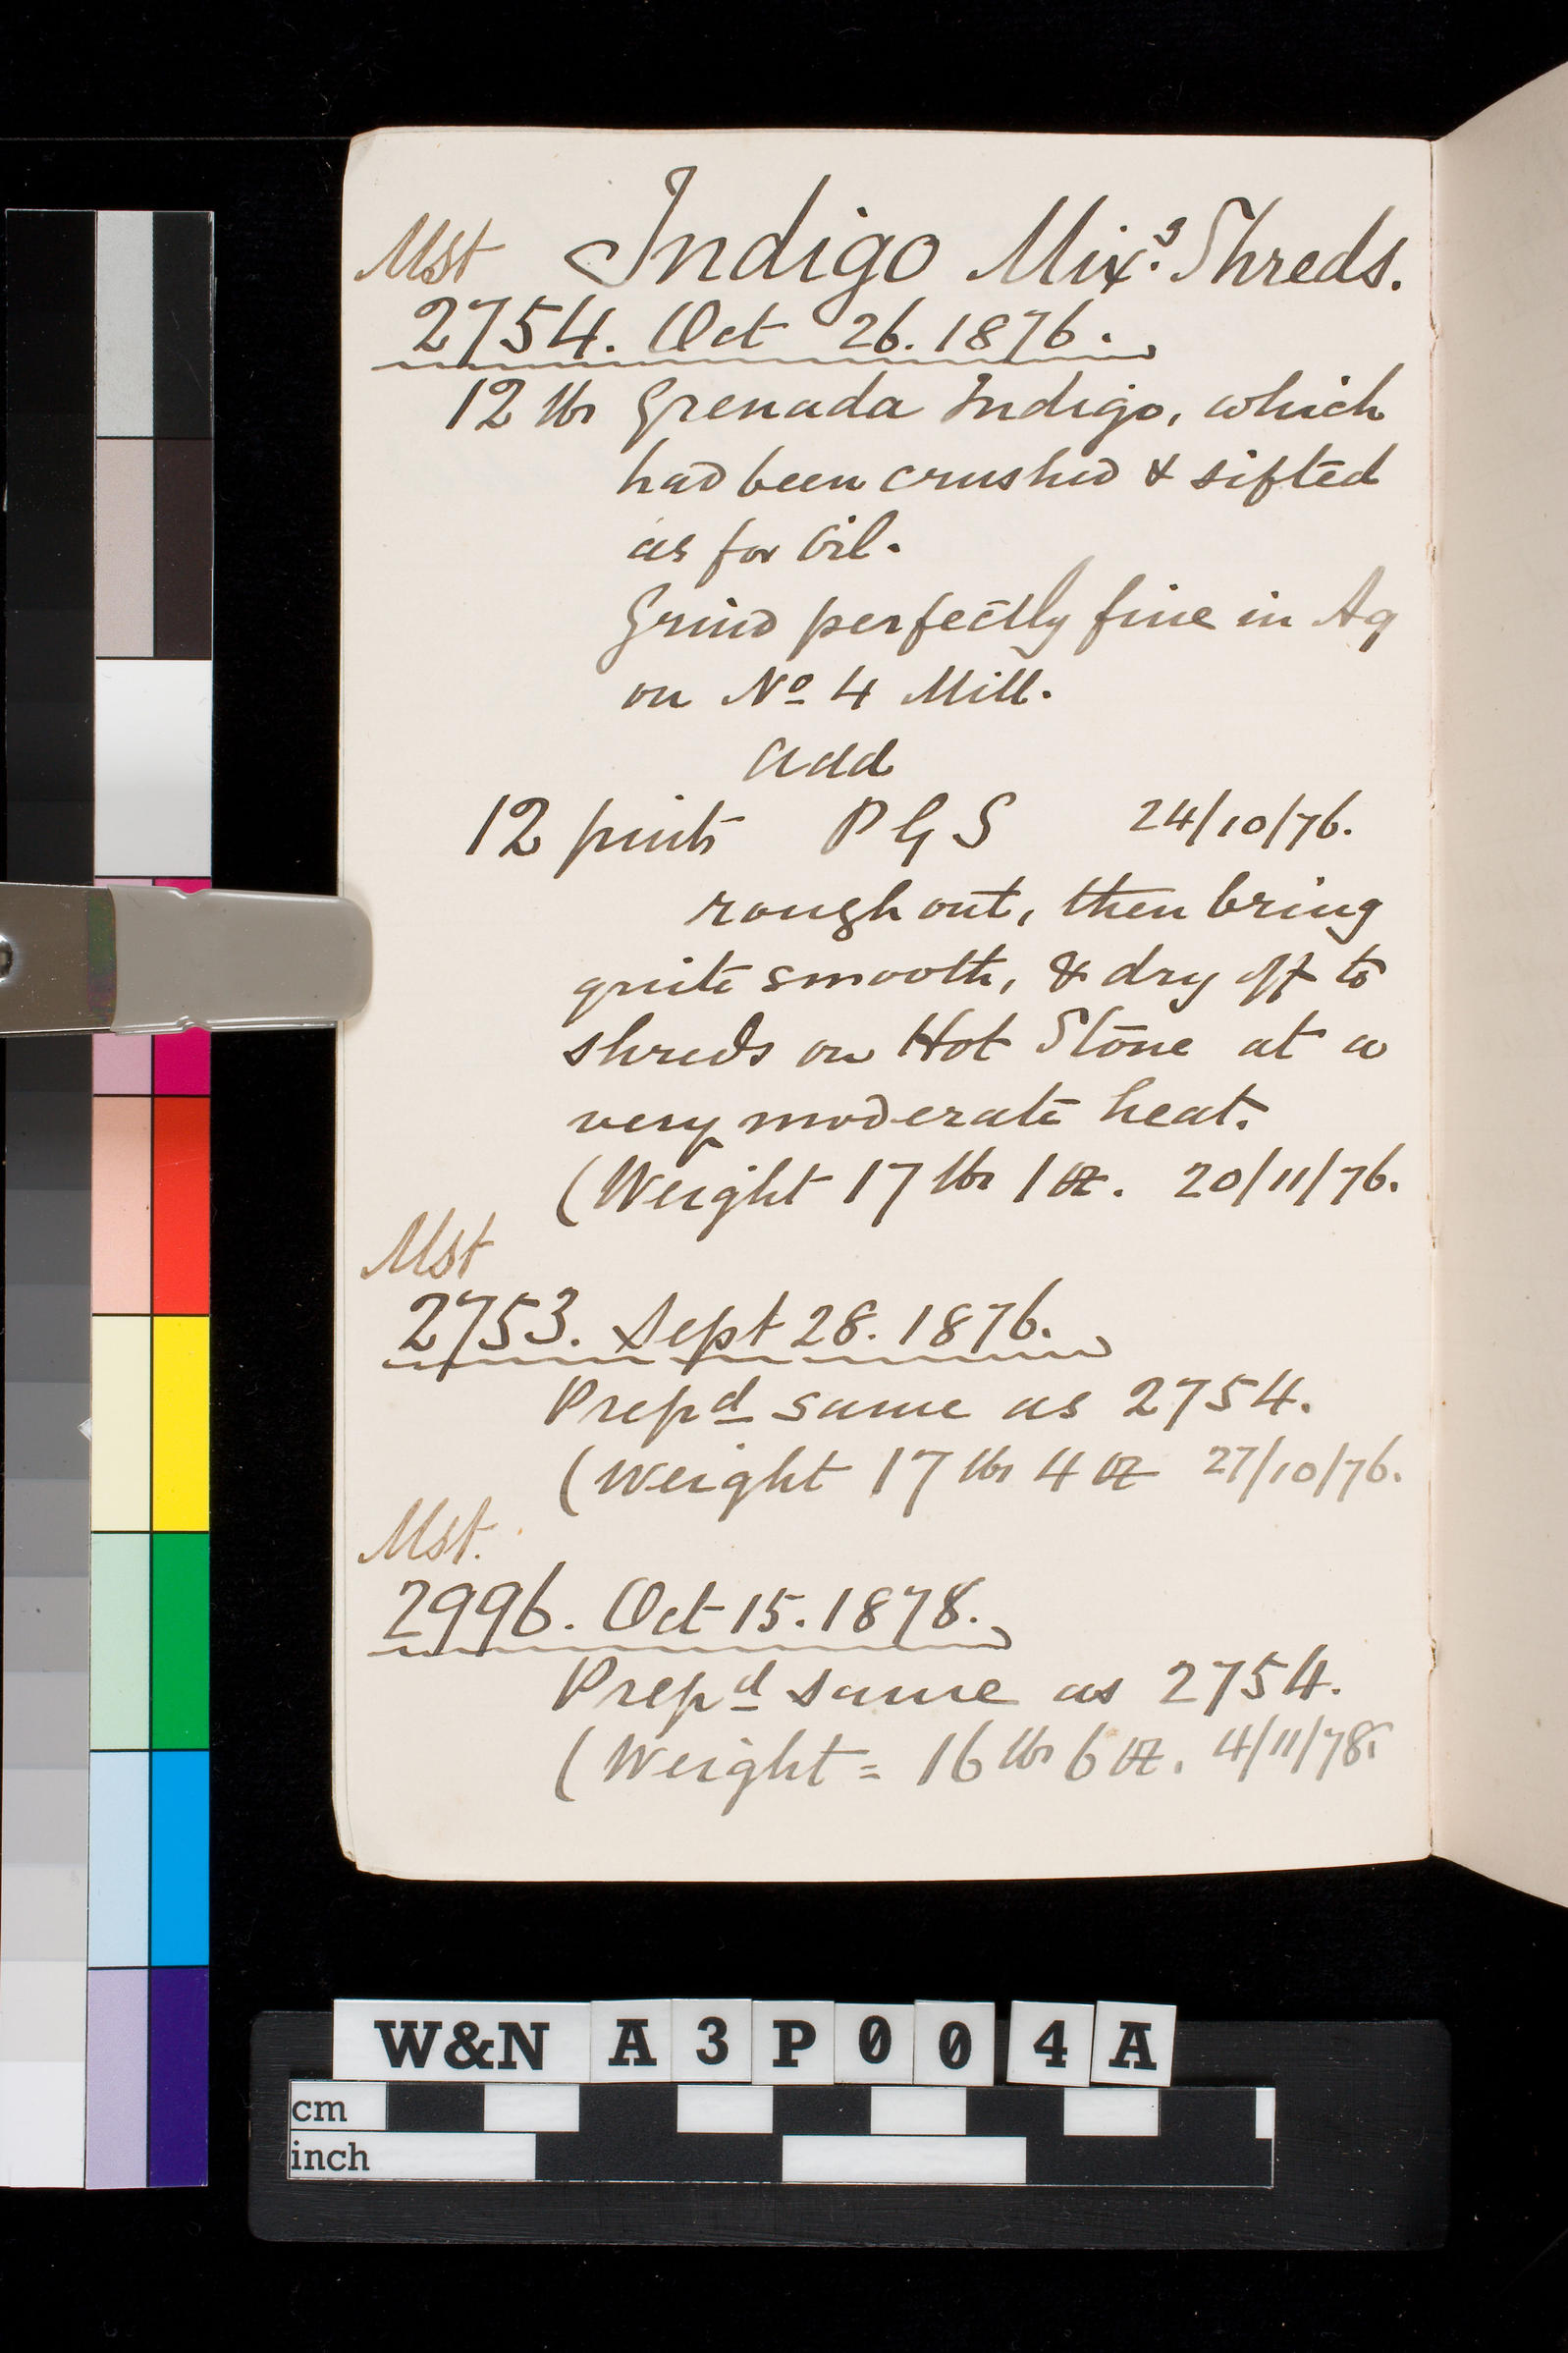 Mst Indigo Mix.s Shreds.
2754. Oct 26. 1876.
12 lbs Grenada Indigo, which
had been crushed & sifted
as for Oil.
Grind perfectly fine in Aq
on No 4 Mill.
add
12 pints P G S 24/10/76.
rough out, then bring
quite smooth, & dry off to
shreds on Hot Stone at a
very moderate heat.
(Weight 17 lbs 1 oz. 20/11/76.
Mst
2753. Sept 28. 1876.
Prepd same as 2754.
(Weight 17 lbs 4 oz 27/10/76.
Mst.
2996. Oct 15. 1878.
Prepd same as 2754.
(Weight = 16 lbs 6 oz. 4/11/78.
W&N A3P004A
cm
inch